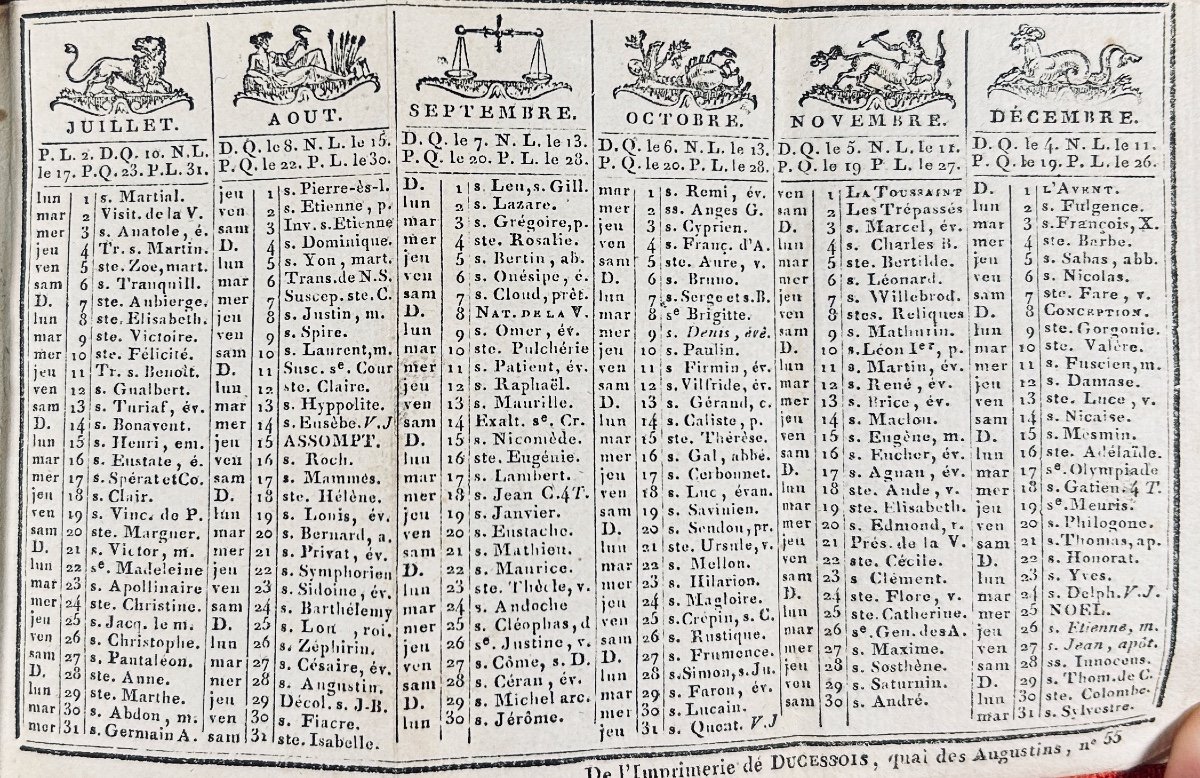 JUILLET.
P. L. 2. D. Q. 10. N. L.
le 17. P. Q. 23. P. L. 31.
lun 1 s. Martial.
mar 2 Visit. de la V.
mer 3 s. Anatole, é.
jeu 4 Tr. s. Martin.
ven 5 ste. Zoe, mart.
sam 6 s. Tranquill.
D. 7 ste. Aubierge.
lun 8 ste. Elisabeth.
mar 9 ste. Victoire.
mer 10 ste. Félicité.
jeu 11 Tr. s. Benoît.
ven 12 s. Gualbert.
sam 13 s. Turiaf, év.
D. 14 s. Bonavent.
lun 15 s. Henri, em.
mar 16 s. Eustate, é.
mer 17 s. Spérat et Co.
jeu 18 s. Clair.
ven 19 s. Vinc. de P.
sam 20 ste. Marguer.
D. 21 s. Victor, m.
lun 22 se. Madeleine
mar 23 s. Apollinaire
mer 24 ste. Christine.
jeu 25 s. Jacq. le m.
ven 26 s. Christophe.
sam 27 s. Pantaléon.
D. 28 ste. Anne.
lun 29 ste. Marthe.
mar 30 s. Abdon, m.
mer 31 s. Germain A.
AOUT.
D. Q. le 8. N. L. le 15.
P. Q. le 22. P. L. le 30.
jeu 1 s. Pierre-ès-l.
ven 2 s. Etienne, p.
sam 3 Inv. s. Etienne
D. 4 s. Dominique.
lun 5 s. Yon, mart.
mar 6 Trans. de N. S.
mer 7 Suscep. ste. C.
jeu 8 s. Justin, m.
ven 9 s. Spire.
sam 10 s. Laurent, m.
D. 11 Susc. se. Cour
lun 12 ste. Claire.
mar 13 s. Hyppolite.
mer 14 s. Eusèbe. V. J
jeu 15 ASSOMPT.
ven 16 s. Roch.
sam 17 s. Mammès.
D. 18 ste. Hélène.
lun 19 s. Louis, év.
mar 20 s. Bernard, a.
mer 21 s. Privat, év.
jeu 22 s. Symphorien
ven 23 s. Sidoine, év.
sam 24 s. Barthélemy
D. 25 s. Lou, roi.
lun 26 s. Zéphirin.
mar 27 s. Césaire, év.
mer 28 s. Augustin.
jeu 29 Décol. s. J. B.
ven 30 s. Fiacre.
sam 31 ste. Isabelle.
SEPTEMBRE.
D. Q. le 7. N. L. le 13.
P. Q. le 20. P. L. le 28.
D. 1 s. Leu, s. Gill.
lun 2 s. Lazare.
mar 3 s. Grégoire, p.
mer 4 ste. Rosalie.
jeu 5 s. Bertin, ab.
ven 6 s. Onésipe, é.
sam 7 s. Cloud, prêt.
D. 8 NAT. DE LA V.
lun 9 s. Omer, év.
mar 10 ste. Pulchérie
mer 11 s. Patient, év.
jeu 12 s. Raphaël.
ven 13 s. Maurille.
sam 14 Exalt. se. Cr.
D. 15 s. Nicomède.
lun 16 ste. Eugénie.
mar 17 s. Lambert.
mer 18 s. Jean C. 4 T.
jeu 19 s. Janvier.
ven 20 s. Eustache.
sam 21 s. Mathieu.
D. 22 s. Maurice.
lun 23 ste. Thècle, v.
mar 24 s. Andoche
mer 25 s. Cléophas, d
jeu 26 se. Justine, v.
ven 27 s. Côme, s. D.
sam 28 s. Céran, év.
D. 29 s. Michel arc.
lun 30 s. Jérôme.
OCTOBRE.
D. Q. le 6. N. L. le 13.
P. Q. le 20. P. L. le 28.
mar 1 s. Remi, év.
mer 2 ss. Anges G.
jeu 3 s. Cyprien.
ven 4 s. Franç. d'A.
sam 5 ste. Aure, v.
D. 6 s. Bruno.
lun 7 s. Serge et s. B.
mar 8 se Brigitte.
mer 9 s. Denis, évê.
jeu 10 s. Paulin.
ven 11 s Firmin, év.
sam 12 s. Vilfride, év.
D. 13 s. Géraud, c.
lun 14 s. Caliste, p.
mar 15 ste. Thérèse.
mer 16 s. Gal, abbé.
jeu 17 s. Cerbonnet.
ven 18 s. Luc, évan.
sam 19 s. Savinien.
D. 20 s. Sendou, pr.
lun 21 ste. Ursule, v.
mar 22 s. Mellon.
mer 23 s. Hilarion.
jeu 24 s. Magloire.
ven 25 s. Crépin, s. C.
sam 26 s. Rustique.
D. 27 s. Frumence.
lun 28 s. Simon, s. Ju.
mar 29 s. Faron, év.
mer 30 s. Lucain.
jeu 31 s. Quent. V. J
NOVEMBRE.
D. Q. le 5. N. L. le 11.
P. Q. le 19 P. L. le 27.
ven 1 LA TOUSSAINT
sam 2 Les Trépassés
D. 3 s. Marcel, év.
lun 4 s. Charles B.
mar 5 ste. Bertilde.
mer 6 s. Léonard.
jeu 7 s. Willebrod.
ven 8 stes. Reliques
sam 9 s. Mathurin.
D. 10 s. Léon Ier, p.
lun 11 s. Martin, év.
mar 12 s. René, év.
mer 13 s. Brice, év.
jeu 14 s. Maclou.
ven 15 s. Eugène, m.
sam 16 s. Eucher, év.
D. 17 s. Agnan, év.
lun 18 ste. Aude, v.
mar 19 ste. Elisabeth.
mer 20 s. Edmond, r.
jeu 21 Prés. de la V.
ven 22 ste. Cécile.
sam 23 s Clément.
D. 24 ste. Flore, v.
lun 25 ste. Catherine.
mar 26 se. Gen. des A.
mer 27 s. Maxime.
jeu 28 s. Sosthène.
ven 29 s. Saturnin.
sam 30 s. André.
DÉCEMBRE.
D. Q. le 4. N. L. le 11.
P. Q. le 19. P. L. le 26.
D. 1 L'AVENT.
lun 2 s. Fulgence.
mar 3 s. François, X.
mer 4 ste. Barbe.
jeu 5 s. Sabas, abb.
ven 6 s. Nicolas.
sam 7 ste. Fare, v.
D. 8 CONCEPTION.
lun 9 ste. Gorgonie.
mar 10 ste. Valère.
mer 11 s. Fuscien, m.
jeu 12 s. Damase.
ven 13 ste. Luce, v.
sam 14 s. Nicaise.
D. 15 s. Mesmin.
lun 16 ste. Adélaïde.
mar 17 se. Olympiade
mer 18 s. Gatien. 4 T.
jeu 19 se. Meuris.
ven 20 s. Philogone.
sam 21 s. Thomas, ap.
D. 22 s. Honorat.
lun 23 s. Yves.
mar 24 s. Delph. V. J.
mer 25 NOEL.
jeu 26 s. Etienne, m.
ven 27 s. Jean, apôt.
sam 28 ss. Innocens.
D. 29 s. Thom. de C.
lun 30 ste. Colombe.
mar 31 s. Sylvestre.
De l'Imprimerie de DUCESSOIS, quai des Augustins, n° 55